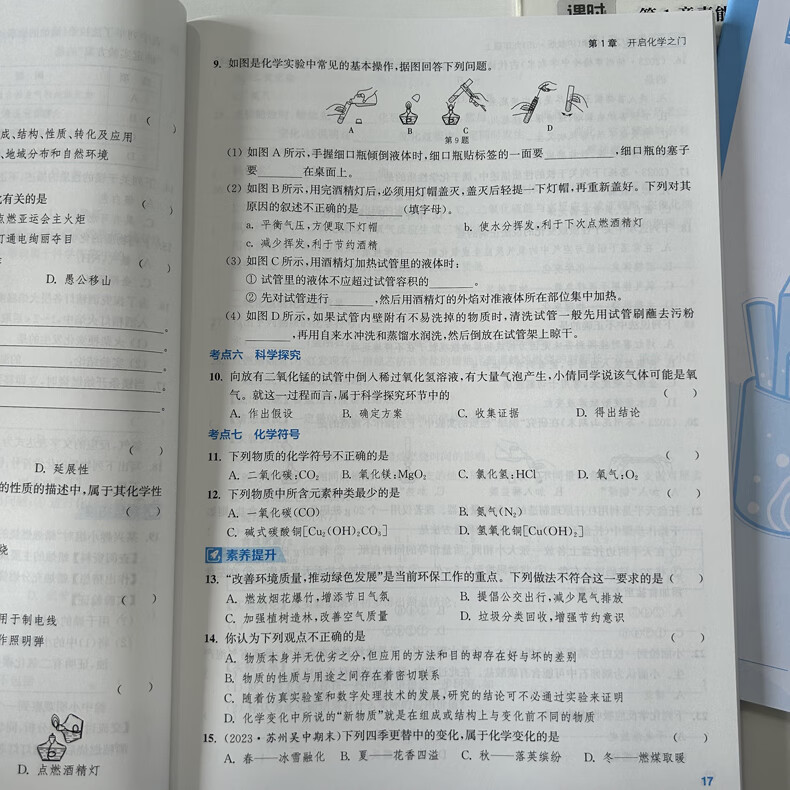 课时
第1章 开启化学之门
成、结构、性质、转化及应用
、地域分布和自然环境
有关的是
点燃亚运会主火炬
灯通电绚丽夺目
D. 愚公移山
D. 延展性
的性质的描述中,属于其化学性
烧
用于制电线
作照明弹
D. 点燃酒精灯
9. 如图是化学实验中常见的基本操作,据图回答下列问题。
A B C D
第9题
(1) 如图A所示,手握细口瓶倾倒液体时,细口瓶贴标签的一面要________,细口瓶的塞子
要______在桌面上。
(2) 如图B所示,用完酒精灯后,必须用灯帽盖灭,盖灭后轻提一下灯帽,再重新盖好。下列对其
原因的叙述不正确的是______(填字母)。
a. 平衡气压,方便取下灯帽 b. 使水分挥发,利于下次点燃酒精灯
c. 减少挥发,利于节约酒精
(3) 如图C所示,用酒精灯加热试管里的液体时:
① 试管里的液体不应超过试管容积的______。
② 先对试管进行______,然后用酒精灯的外焰对准液体所在部位集中加热。
(4) 如图D所示,如果试管内壁附有不易洗掉的物质时,清洗试管一般先用试管刷蘸去污粉
______,再用自来水冲洗和蒸馏水润洗,然后倒放在试管架上晾干。
考点六 科学探究
10. 向放有二氧化锰的试管中倒入稀过氧化氢溶液,有大量气泡产生,小倩同学说该气体可能是氧
气。就这一过程而言,属于科学探究环节中的 ( )
A. 作出假设 B. 确定方案 C. 收集证据 D. 得出结论
考点七 化学符号
11. 下列物质的化学符号不正确的是 ( )
A. 二氧化碳:CO₂ B. 氧化镁:MgO₂ C. 氯化氢:HCl D. 氧气:O₂
12. 下列物质中所含元素种类最少的是 ( )
A. 一氧化碳(CO) B. 氮气(N₂)
C. 碱式碳酸铜[Cu₂(OH)₂CO₃] D. 氢氧化铜[Cu(OH)₂]
素养提升
13. “改善环境质量,推动绿色发展”是当前环保工作的重点。下列做法不符合这一要求的是 ( )
A. 燃放烟花爆竹,增添节日气氛 B. 提倡公交出行,减少尾气排放
C. 加强植树造林,改善空气质量 D. 垃圾分类回收,增强节约意识
14. 你认为下列观点不正确的是 ( )
A. 物质本身并无优劣之分,但应用的方法和目的却存在好与坏的差别
B. 物质的性质与用途之间存在着密切联系
C. 随着仿真实验室和数字处理技术的发展,研究的结论可不必通过实验来证明
D. 化学变化中所说的“新物质”就是在组成或结构上与变化前不同的物质
15. (2023·苏州吴中期末)下列四季更替中的变化,属于化学变化的是 ( )
A. 春——冰雪融化 B. 夏——花香四溢 C. 秋——落英缤纷 D. 冬——燃煤取暖
17